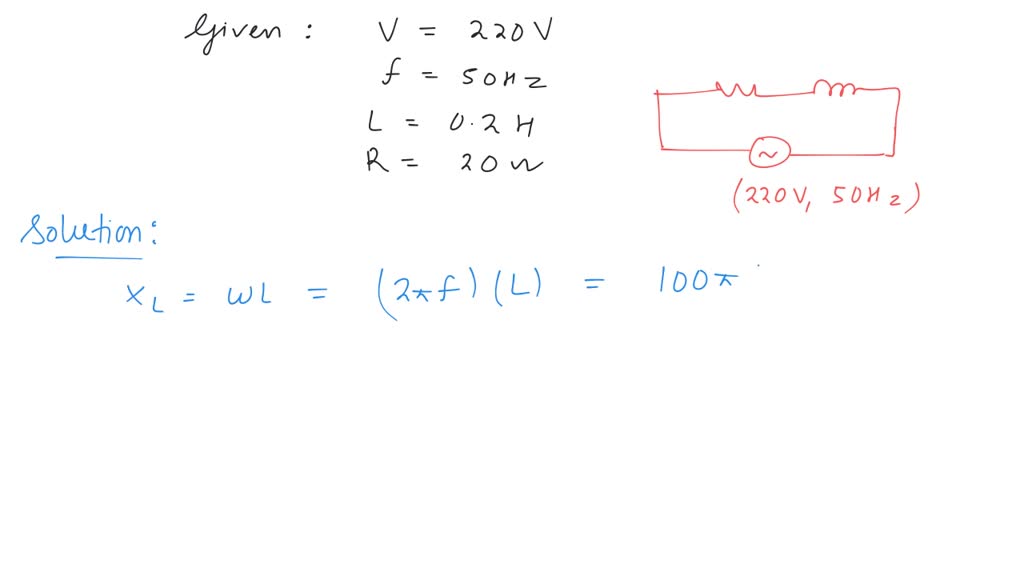 Given : V = 220V
f = 50Hz
L = 0.2 H
R = 20 Ω
(220V, 50Hz)
Solution:
XL = ωL = (2πf) (L) = 100π